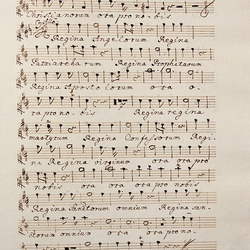 Christianorum ora pro nobis
Regina Angelorum Regina
Patriarcharum Regina Prophetarum
Regina Apostolorum ora o.
ra pro nobis Regina regina
martyrum Regina Confessorum Regi.
na Regina virginum ora ora pro
nobis ora ora pro nobis
Regina Sanctorum omnium Regina San.
ctorum omnium ora ora pro no.